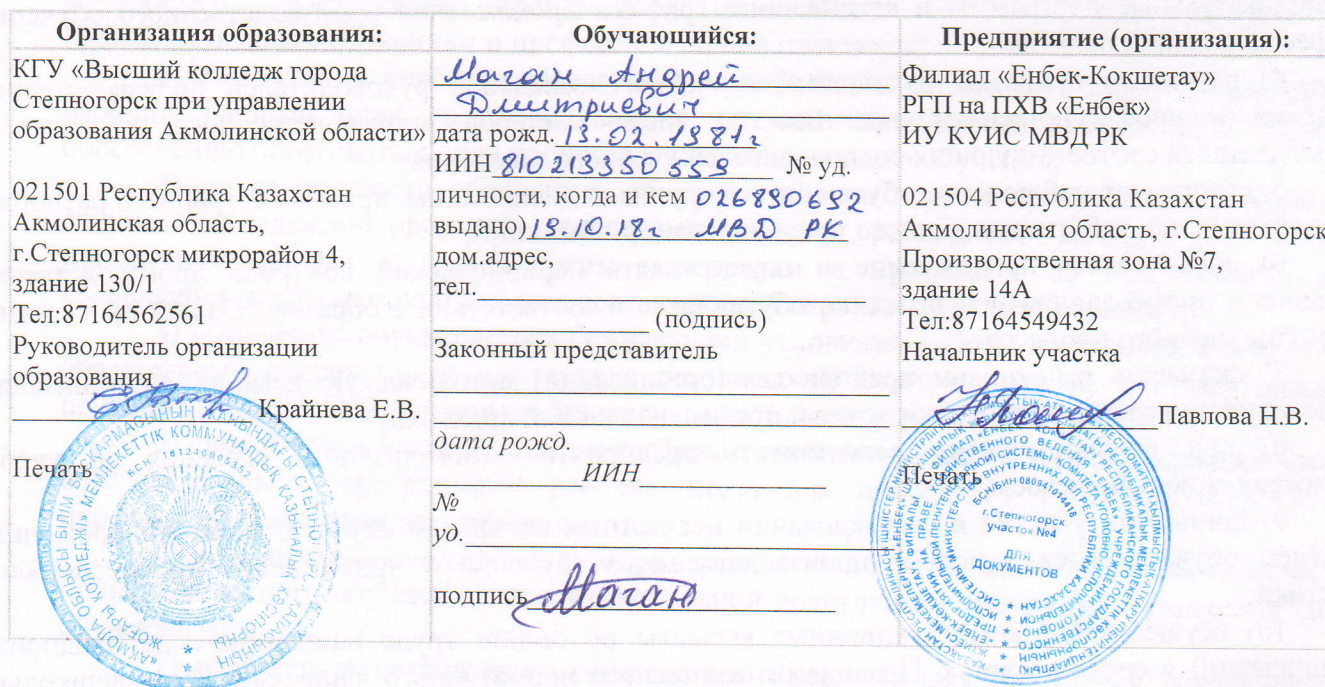 Организация образования:
КГУ «Высший колледж города
Степногорск при управлении
образования Акмолинской области»
021501 Республика Казахстан
Акмолинская область,
г.Степногорск микрорайон 4,
здание 130/1
Тел:87164562561
Руководитель организации
образования
Крайнева Е.В.
Печать
Обучающийся:
Маган Андрей
Дмитриевич
дата рожд. 13.02.1981г
ИИН 810213350553 № уд.
личности, когда и кем 026830632
выдано) 19.10.18г МВД РК
дом.адрес,
тел.
(подпись)
Законный представитель
дата рожд.
ИИН
№
уд.
подпись Маган
Предприятие (организация):
Филиал «Енбек-Кокшетау»
РГП на ПХВ «Енбек»
ИУ КУИС МВДРК
021504 Республика Казахстан
Акмолинская область, г.Степногорск
Производственная зона №7,
здание 14А
Тел:87164549432
Начальник участка
Павлова Н.В.
Печать
г.Степногорск
участок №4
ДЛЯ
ДОКУМЕНТОВ